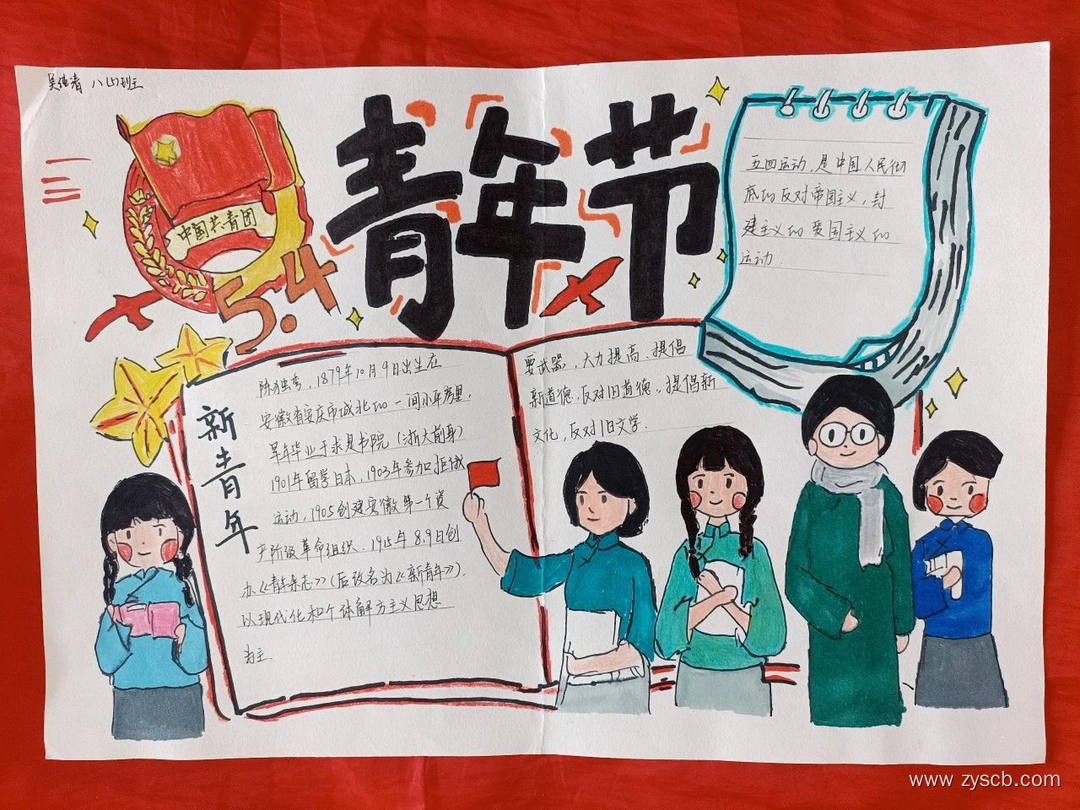 八(5)班
青年节
中国共青团
5.4
五四运动,是中国人民彻
底的反对帝国主义,封
建主义的爱国主义的
运动.
新青年
陈独秀,1879年10月9日出生在
安徽省安庆市城北的一间小年房里,
早年毕业于求是书院(浙大前身)
1901年留学日本,1903年参加拒俄
运动,1905创建安徽第一个资
产阶级革命组织.1915年8.9日创
办《青年杂志》(后改名为《新青年》).
以现代化和个体解方主义思想
为主.
要武器,大力提高、提倡
新道德,反对旧道德、提倡新
文化,反对旧文学.
www.zyscb.com